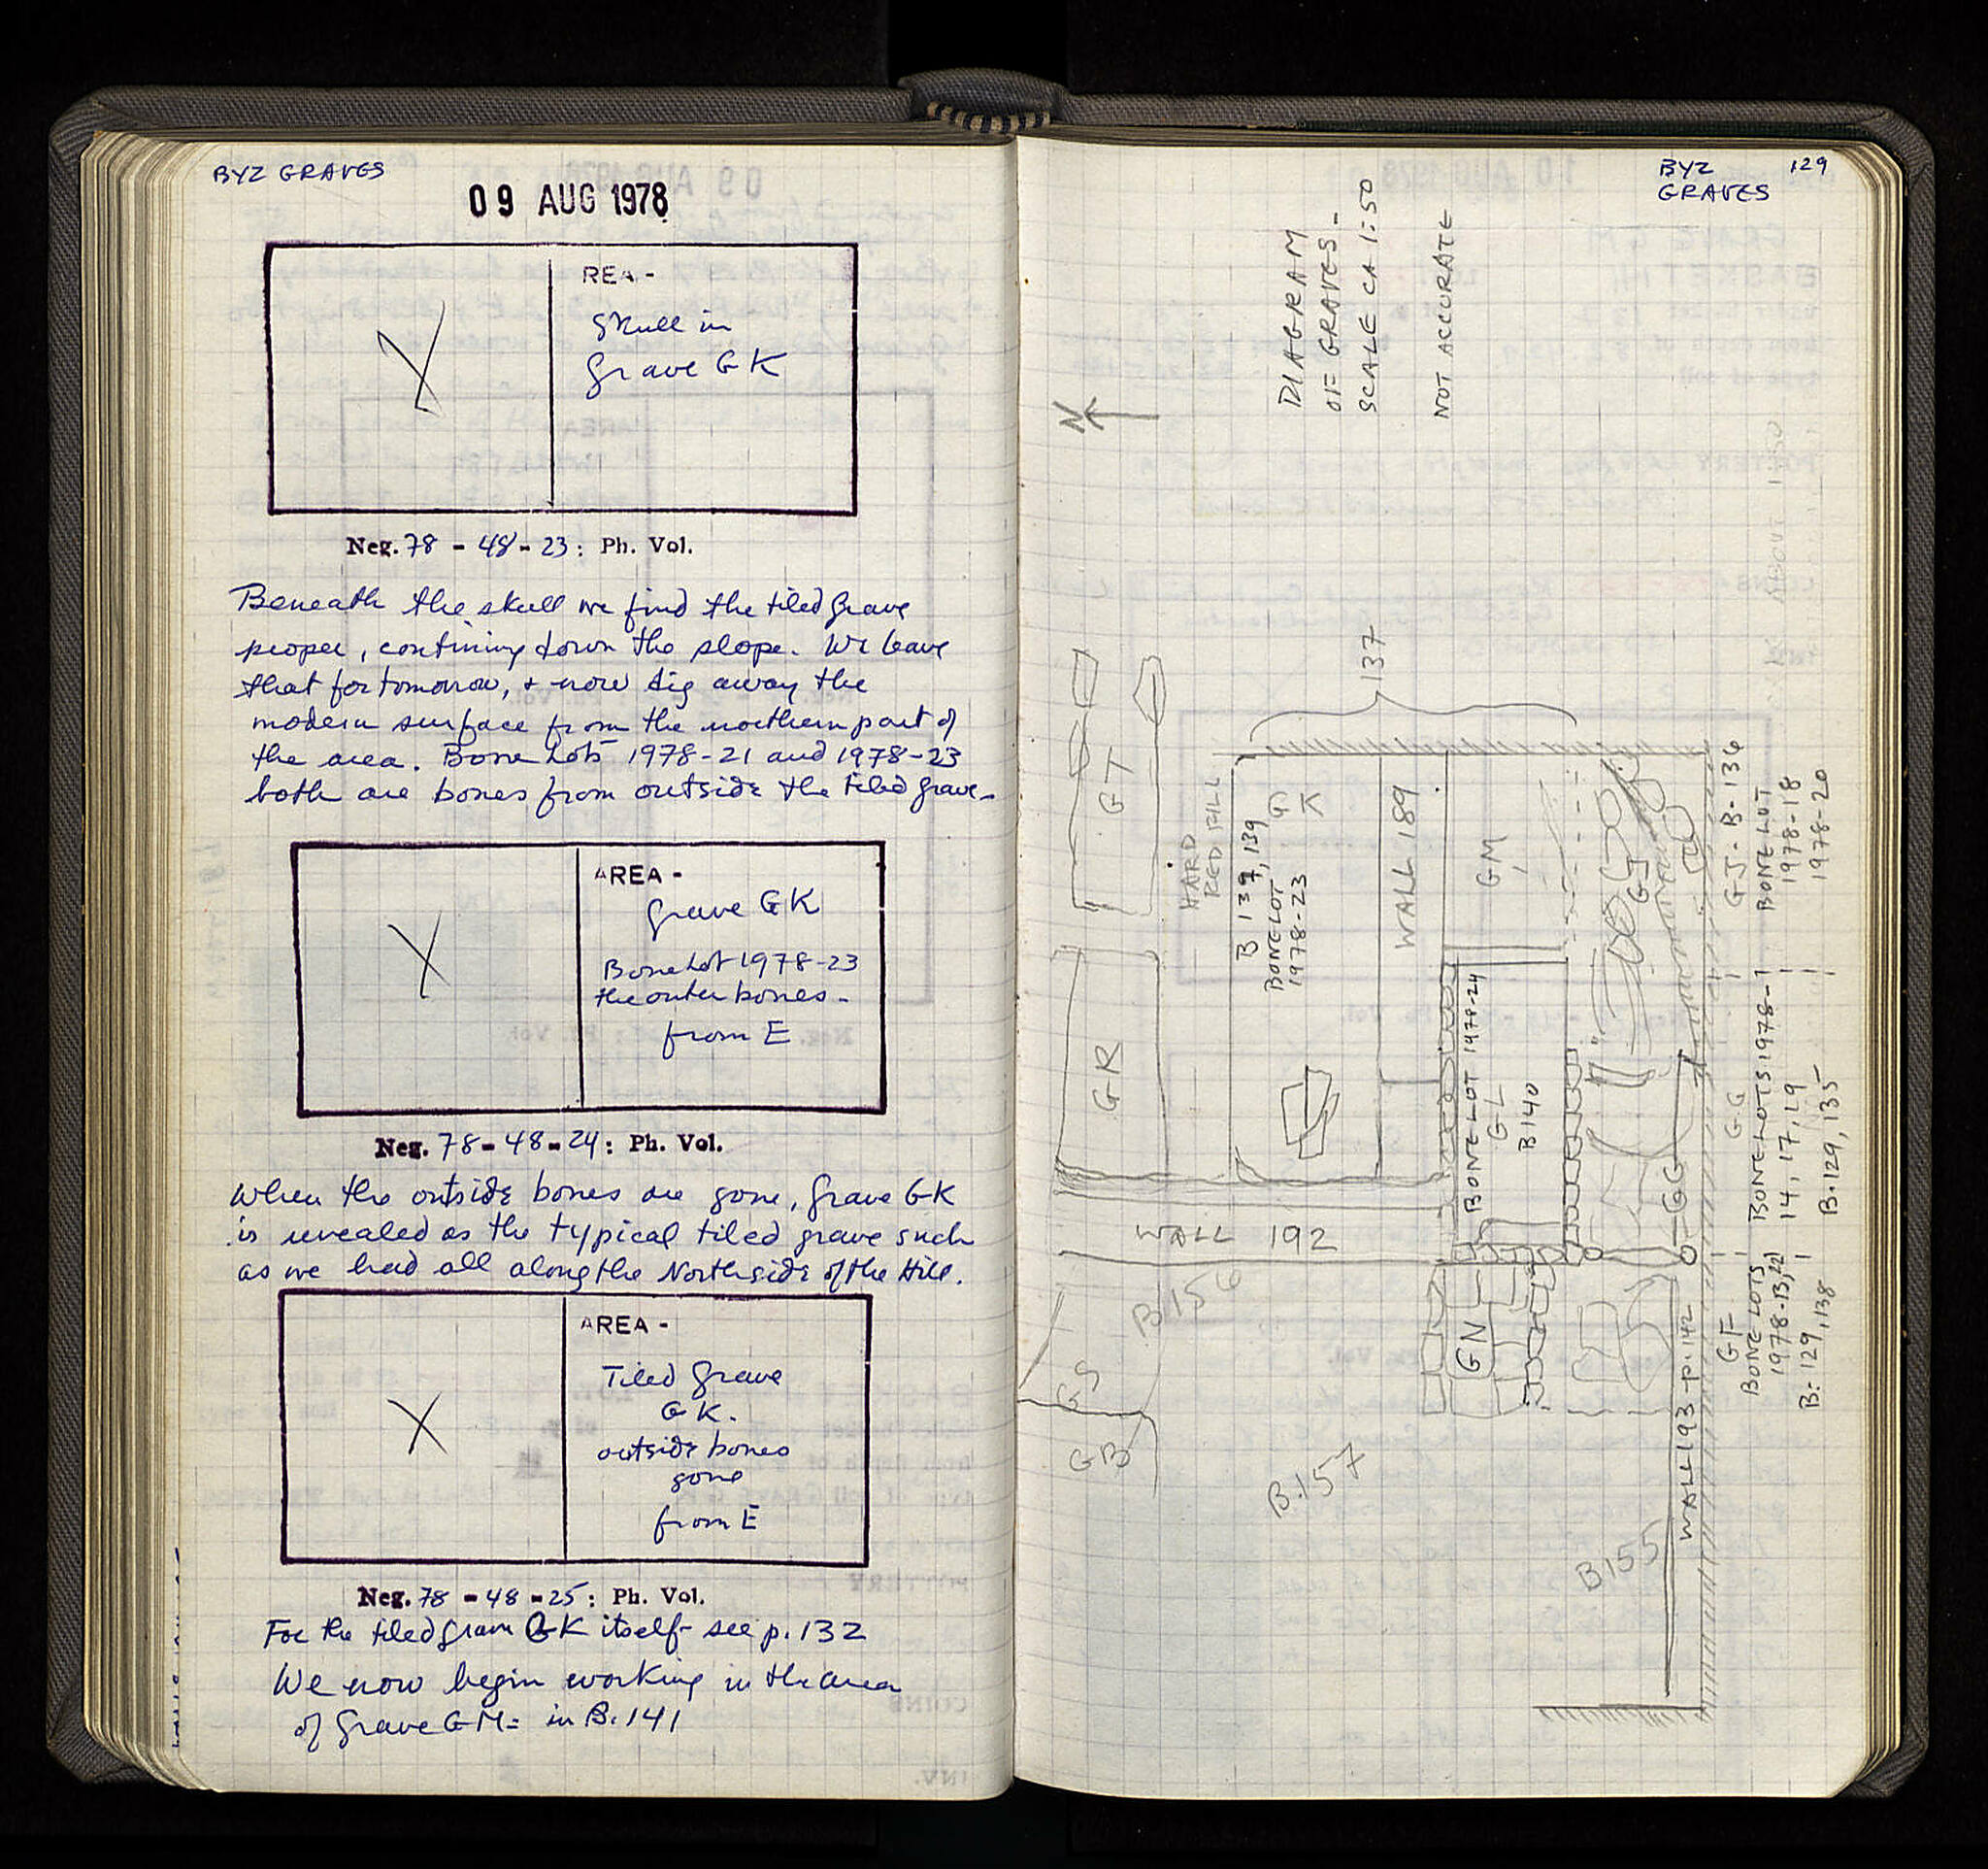 BYZ GRAVES
09 AUG 1978
REA -
Skull in
Grave GK
Neg. 78 - 48 - 23 : Ph. Vol.
Beneath the skull we find the tiled grave
proper, contining down the slope. We leave
that for tomorrow, + now dig away the
modern surface from the northern part of
the area. Bone Lots 1978-21 and 1978-23
both are bones from outside the tiled grave.
AREA -
Grave GK
Bone Lot 1978-23
the outer bones -
from E
Neg. 78 - 48 - 24 : Ph. Vol.
When the outside bones are gone, Grave GK
is revealed as the typical tiled grave such
as we had all along the North side of the Hill.
AREA -
Tiled Grave
GK.
outside bones
gone
from E
Neg. 78 - 48 - 25 : Ph. Vol.
For the tiled grave GK itself - see p. 132
We now begin working in the area
of Grave GM = in B. 141
BYZ
GRAVES
129
DIAGRAM
OF GRAVES -
SCALE CA 1:50
NOT ACCURATE
N
137
GT
HARD
RED FILL
B 137, 139
BONE LOT
1978-23
GK
WALL 189
GM
GJ
GJ - B. 136
BONE LOT
1978-18
1978-20
GR
BONE LOT 1978-24
GL
B 140
GG
GG
BONE LOTS 1978-
14, 17, 19
B. 129, 135
WALL 192
B.156
GS
GB
GN
B.157
B155
WALL 193 p. 142
GF
BONE LOTS
1978-13, 22
B. 129, 138